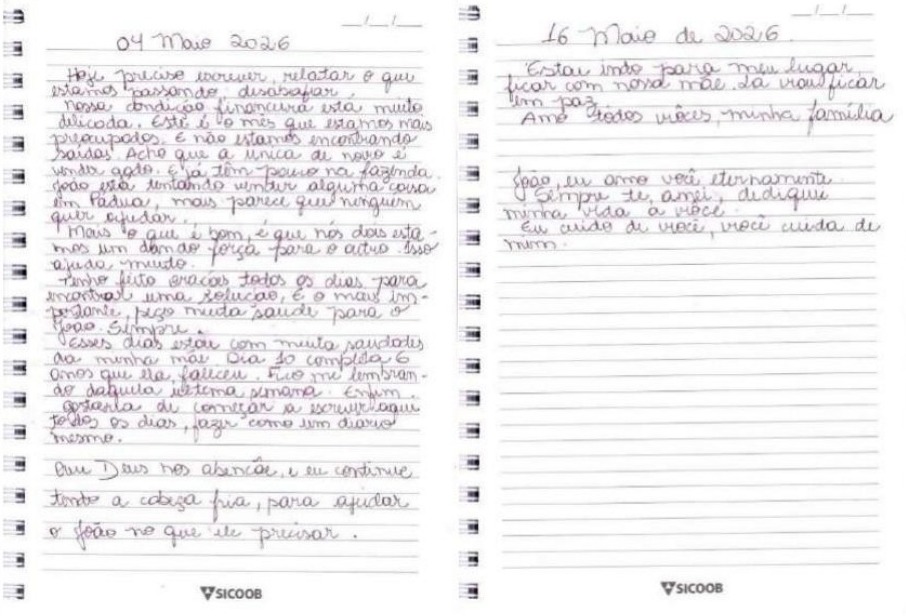 __/__/__
04 Maio 2026
Hoje preciso escrever, relatar o que
estamos passando, desabafar.
Nossa condição financeira esta muito
delicada. Este é o mês que estamos mais
preocupados. E não estamos encontrando
saídas. Acho que a única de novo é
vender gado. E já têm pouco na fazenda.
João está tentando vender alguma coisa
em Pádua, mais parece que ninguem
quer ajudar.
Mais o que é bom, é que nos dois esta-
mos um dando força para o outro. Isso
ajuda muito.
Tenho feito oracões todos os dias para
encontrar uma solucão, E o mais im-
portante, pezo muita saúde para o
João. Sempre.
Esses dias estou com muita saudades
da minha mãe. Dia 10 completa 6
anos que ela faleceu. Fico me lembran-
do daquela ultema semana. Enfim.
Gostaria de começar a escrever aqui
todos os dias, fazer como um diario
mesmo.
Que Deus nos abencõe, e eu continue
tendo a cabeça fria, para ajudar
o João no que ele precisar.
SICOOB
__/__/__
16 Maio de 2026.
Estou indo para meu lugar
ficar com nossa mãe. Lá vou ficar
em paz.
Amo todos vocês, minha família
João, eu amo você eternamente.
Sempre te amei, dediquei
minha vida a você.
Eu cuido de você, você cuida de
mim.
SICOOB